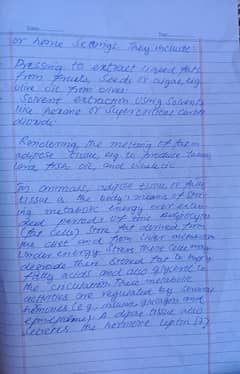 or home settings. They include:
Pressing to extract liquid fats
from fruits, seeds or algae, eg
olive oil from olives
Solvent extraction using solvents
like hexane or supercritical carbon
dioxide.
Rendering, the melting of fat in
adipose tissue, eg. to produce tallow,
lard, fish oil, and whale oil.
In animals, adipose tissue, or fatty
tissue is the body's means of storing
metabolic energy over extended
periods of time. Adipocytes
(fat cells) store fat derived from
the diet and from liver metabolism
Under energy stress these cells may
degrade their stored fat to supply
fatty acids and also glycerol to
the circulation. These metabolic
activities are regulated by several
hormones (e.g., insulin, glucagon and
epinephrine). Adipose tissue also
secretes the hormone leptin